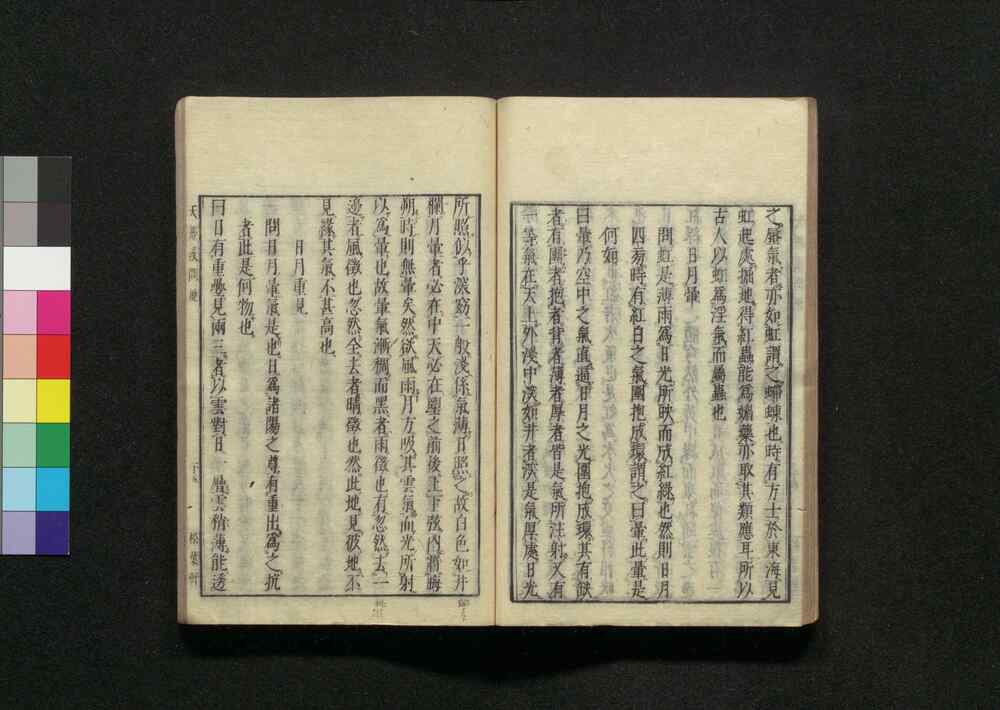 之蜃氣者亦如虹謂之螮蝀也時有方士於東海見
虹起處掘地得紅蟲能爲媚藥亦取其類應耳所以
古人以虹爲淫氣而屬蟲也
日月暈
問虹是薄雨爲日光所映而成紅綠也然則日月
四旁時有紅白之氣圍抱成環謂之曰暈此暈是
何如
曰暈乃空中之氣直逼日月之光圍抱成環其有缺
者有圍者抱者背者薄者厚者皆是氣所注射又有
等氣在天上外淺中深如井者深是氣厚處日光
所照似乎深窈一般淺係氣薄日照之故白色如井
欄月暈者必在中天必在塵之前後上下弦內將晦
朔時則無暈矣然欲風雨月方吸其雲氣而光所射
以爲暈也故暈氣漸稠而黑者雨徵也有忽然去一
邊者風徵也忽然全去者晴徵也然此地見彼地不
見緣其氣不甚高也
日月重見
問日月暈氣是也日爲諸陽之尊有重出爲之抗
者此是何物也
曰日有重疊見兩三者以雲對日一層雲稍薄能透
天經或問
松葉軒